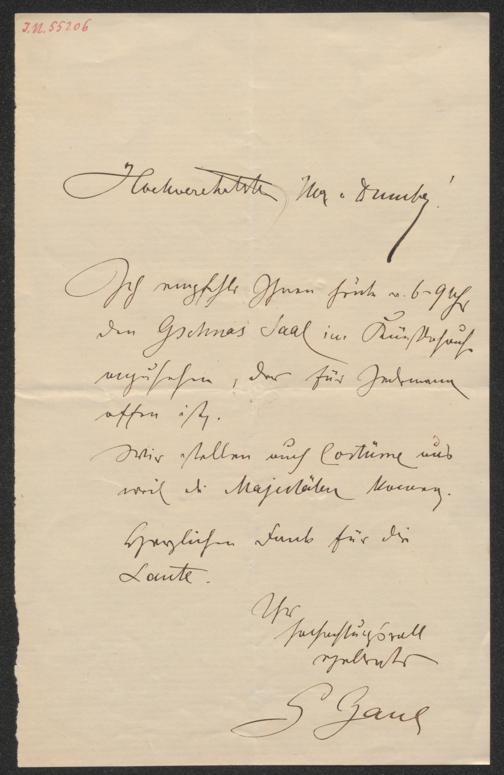 I.N. 55206
Hochverehrtester Herr v Dumba!
Ich empfehle Ihnen heute v. 6–9 Uhr
den Gschnas Saal im Künstlerhause
anzusehen, der für Jedermann
offen ist.
Wir stellen auch Costüme aus
weil die Majestäten kommen.
Herzlichen Dank für die
Laute.
Ihr
hochachtungsvoll
ergebenster
G Gaul